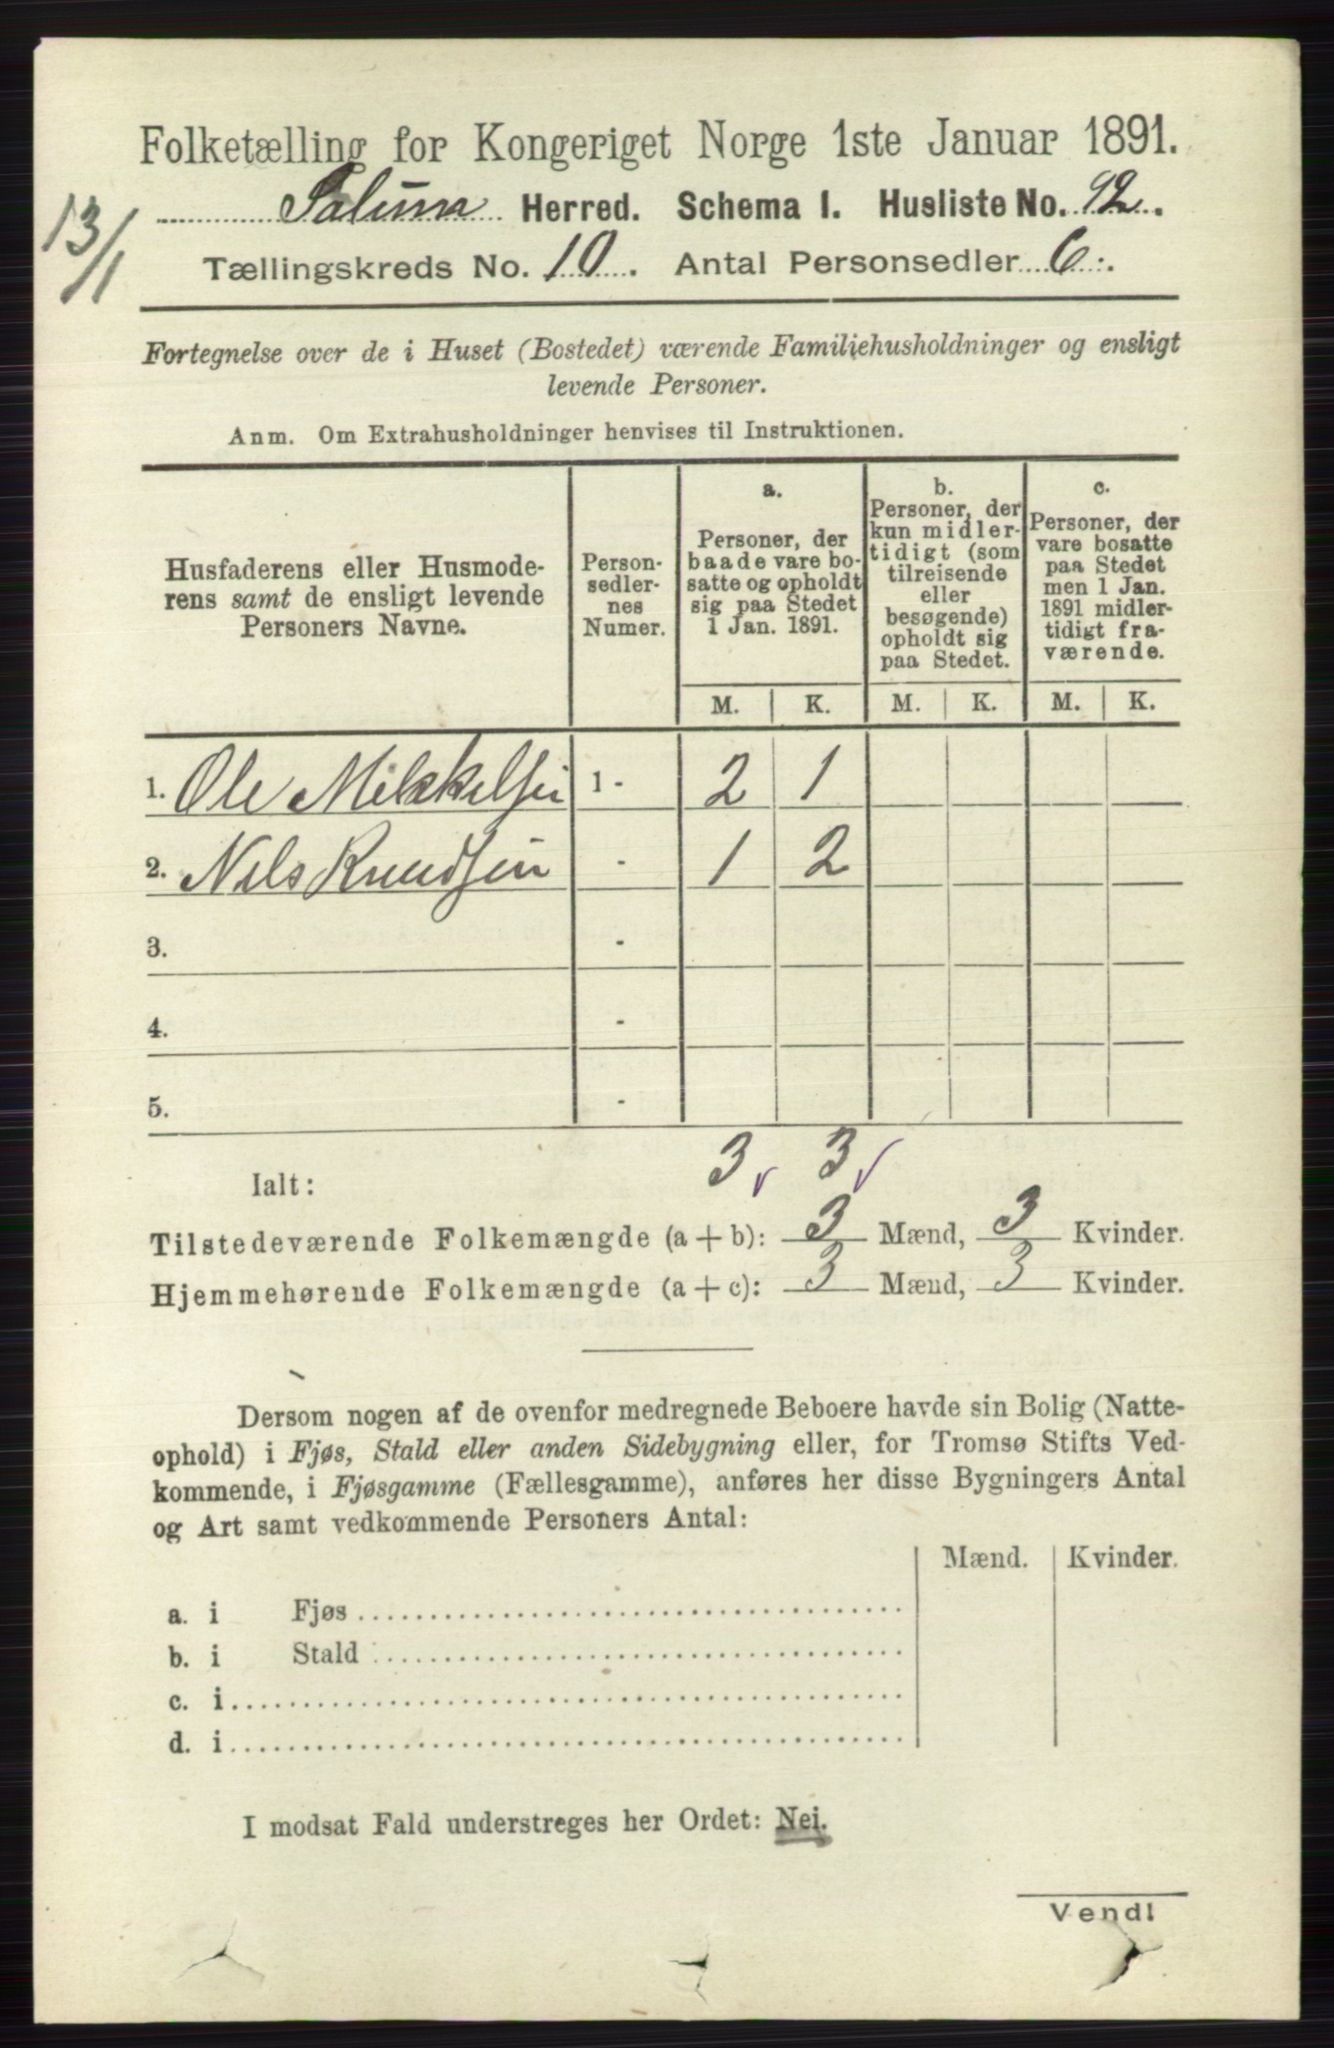 Folketælling for Kongeriget Norge 1ste Januar 1891.
13/1
Solum Herred. Schema 1. Husliste No. 92.
Tællingskreds No. 10. Antal Personsedler 6.
Fortegnelse over de i Huset (Bostedet) værende Familiehusholdninger og ensligt
levende Personer.
Anm. Om Extrahusholdninger henvises til Instruktionen.
Husfaderens eller Husmode-
rens samt de ensligt levende
Personers Navne.
Person-
sedler-
nes
Numer.
a.
Personer, der
baade vare bo-
satte og opholdt
sig paa Stedet
1 Jan. 1891.
b.
Personer, der
kun midler-
tidigt (som
tilreisende
eller
besøgende)
opholdt sig
paa Stedet.
c.
Personer, der
vare bosatte
paa Stedet
men 1 Jan.
1891 midler-
tidigt fra-
værende.
M. K. M. K. M. K.
1. Ole Mikkelsen 1 - 2 1
2. Nils Knudsen - 1 2
3. -
4. -
5. -
Ialt: 3 3
Tilstedeværende Folkemængde (a + b): 3 Mænd, 3 Kvinder.
Hjemmehørende Folkemængde (a + c): 3 Mænd, 3 Kvinder.
Dersom nogen af de ovenfor medregnede Beboere havde sin Bolig (Natte-
ophold) i Fjøs, Stald eller anden Sidebygning eller, for Tromsø Stifts Ved-
kommende, i Fjøsgamme (Fællesgamme), anføres her disse Bygningers Antal
og Art samt vedkommende Personers Antal:
Mænd. Kvinder.
a. i Fjøs
b. i Stald
c. i
d. i
I modsat Fald understreges her Ordet: Nei.
Vend!